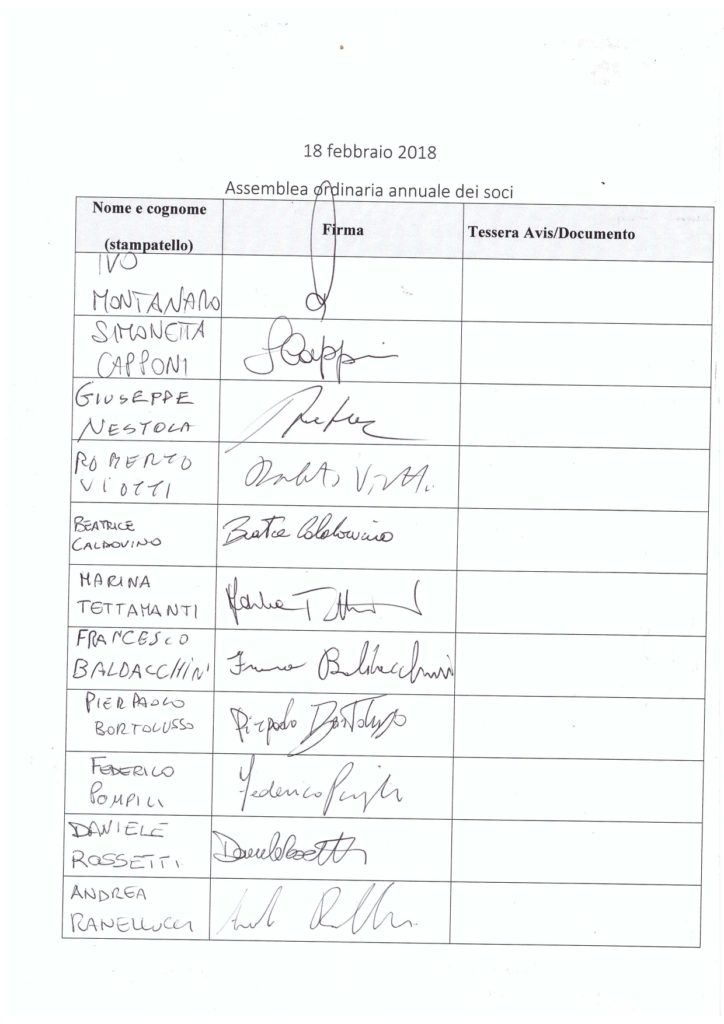 18 febbraio 2018
Assemblea ordinaria annuale dei soci
Nome e cognome
(stampatello)
Firma
Tessera Avis/Documento
IVO
MONTANARO
SIMONETTA
CAPPONI
SCapponi
GIUSEPPE
NESTOLA
ROBERTO
VIOTTI
Roberto Viotti
BEATRICE
CALDOVINO
Beatrice Caldovino
MARINA
TETTAMANTI
Marina
FRANCESCO
BALDACCHINI
Baldacchini
PIERPAOLO
BORTOLUSSO
Pierpaolo Bortolusso
FEDERICO
POMPILI
Federico
DANIELE
ROSSETTI
Daniele Rossetti
ANDREA
RANELLUCCI